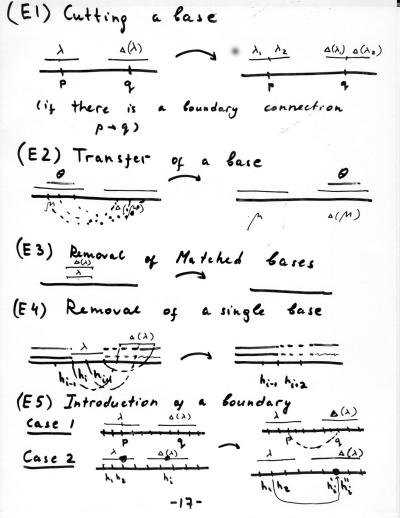 (E1) Cutting a base
λ Δ(λ) λ₁ λ₂ Δ(λ₁) Δ(λ₂)
p q p q
(if there is a boundary connection
p→q)
(E2) Transfer of a base
θ θ
μ Δ(μ) μ Δ(μ)
(E3) Removal of Matched bases
Δ(λ)
λ
(E4) Removal of a single base
λ Δ(λ)
hᵢ₋₁ hᵢ hᵢ₊₁ hᵢ₋₁ hᵢ₊₂
(E5) Introduction of a boundary
Case 1 λ Δ(λ) λ Δ(λ)
p q p q
Case 2 λ Δ(λ) λ Δ(λ)
h₁ h₂ hᵢ h₁ h₂ hᵢ' hᵢ''
-17-